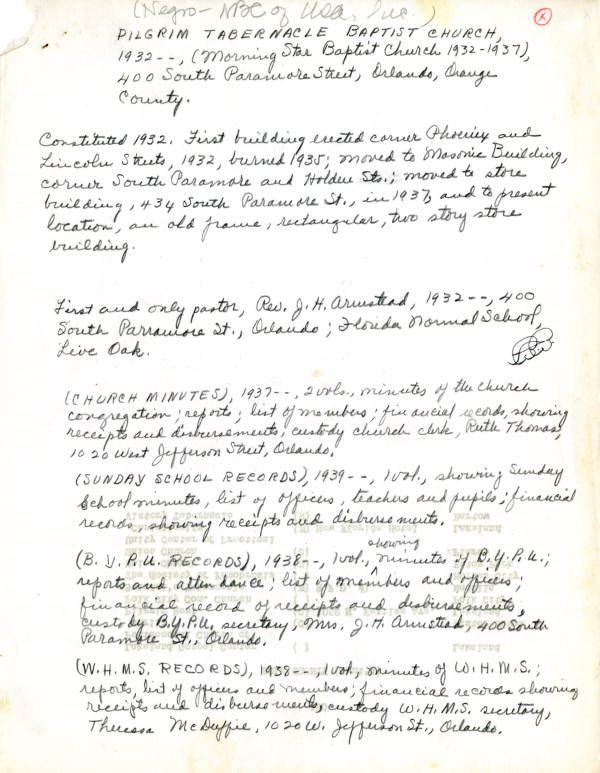 (Negro - NBC of USA, Inc.)
(x)
PILGRIM TABERNACLE BAPTIST CHURCH,
1932--, (Morning Star Baptist Church 1932-1937),
400 South Paramore Street, Orlando, Orange
County.
Constituted 1932. First building erected corner Phoeniex and
Lincoln Streets, 1932, burned 1935; moved to Masonic Building,
corner South Paramore and Holden Sts.; moved to store
building, 434 South Paramore St., in 1937, and to present
location, an old frame, rectangular, two story store
building.
First and only pastor, Rev. J. H. Armstead, 1932--, 400
South Parramore St., Orlando; Florida Normal School,
Live Oak.
(CHURCH MINUTES), 1937--, 2 vols., minutes of the church
congregation; reports; list of members; financial records, showing
receipts and disbursements, custody church clerk, Ruth Thomas,
1020 West Jefferson Street, Orlando.
(SUNDAY SCHOOL RECORDS), 1939--, 1 vol., showing Sunday
School minutes, list of officers, teachers and pupils; financial
records, showing receipts and disbursements.
showing
(B.Y.P.U. RECORDS), 1938--, 1 vol., minutes of B.Y.P.U.;
reports and attendance; list of members and officers;
financial record of receipts and disbursements,
custody B.Y.P.U. secretary, Mrs. J. H. Armstead, 400 South
Paramore St., Orlando.
(W.H.M.S. RECORDS), 1938--, 1 vol., minutes of W.H.M.S.;
reports, list of officers and members; financial records showing
receipts and disbursements, custody W.H.M.S. secretary,
Theressa McDuffie, 1020 W. Jefferson St., Orlando.